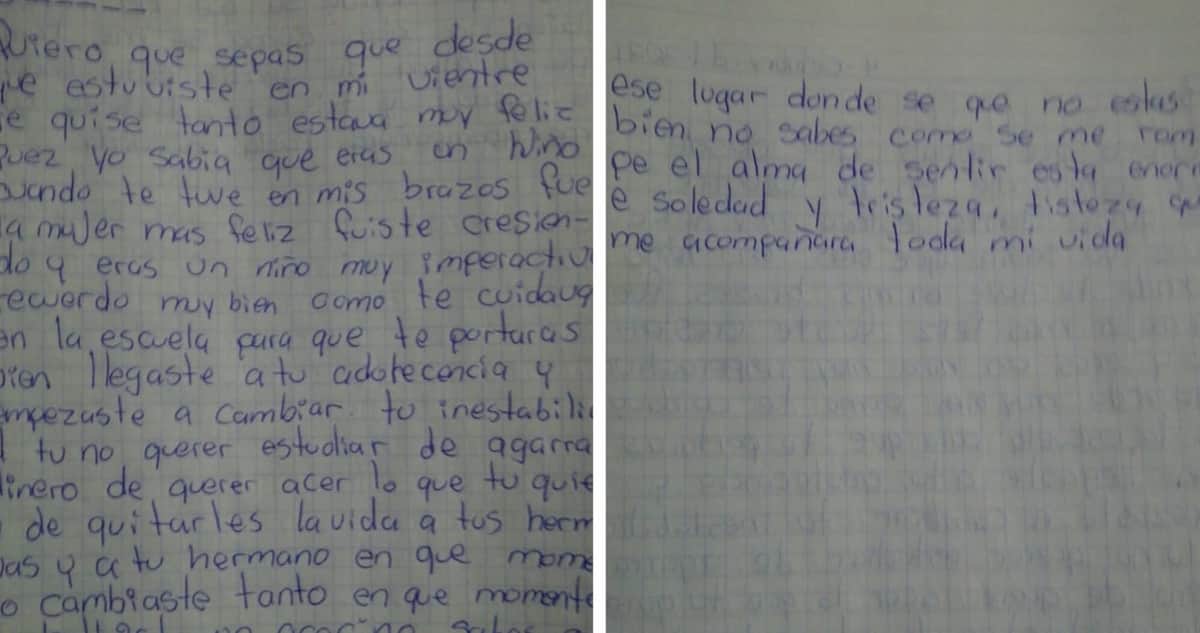 Quiero que sepas que desde
que estuviste en mi vientre
te quise tanto estava muy feliz
Puez yo sabia que eras un Niño
cuando te tuve en mis brazos fue
la mujer mas feliz fuiste cresien-
do y eras un niño muy imperactiv
recuerdo muy bien como te cuidava
en la escuela para que te portaras
bien llegaste a tu adolecencia y
empezaste a cambiar. tu inestabili
tu no querer estudiar de agarra
dinero de querer acer lo que tu quie
de quitarles la vida a tus herm
nas y a tu hermano en que mome
o cambiaste tanto en que momento
ese lugar donde se que no estas
bien no sabes como se me rom
pe el alma de sentir esta enorm
e soledad y tristeza, tisteza que
me acompañara toda mi vida